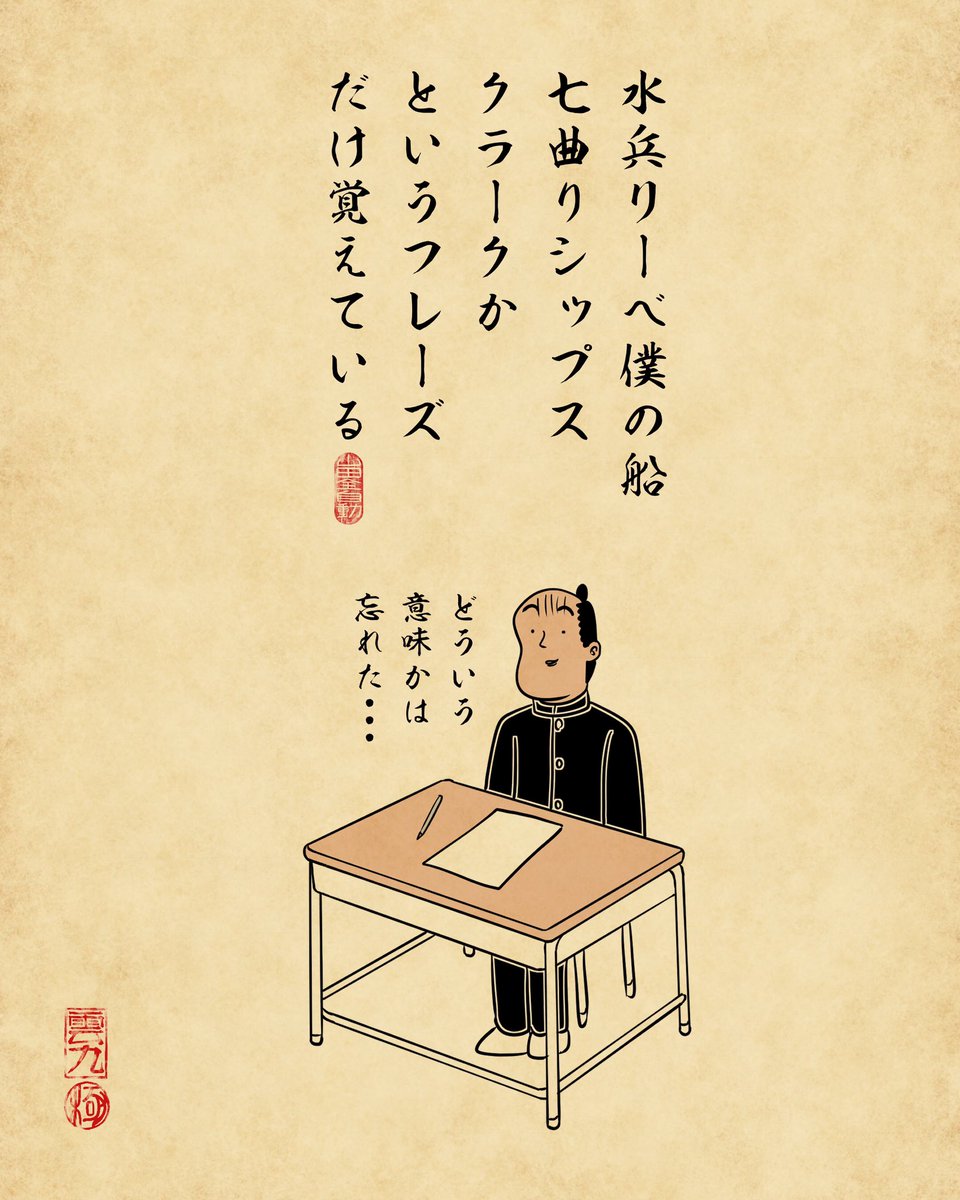 水兵リーベ僕の船
七曲りシップス
クラークか
というフレーズ
だけ覚えている
どういう
意味かは
忘れた・・・